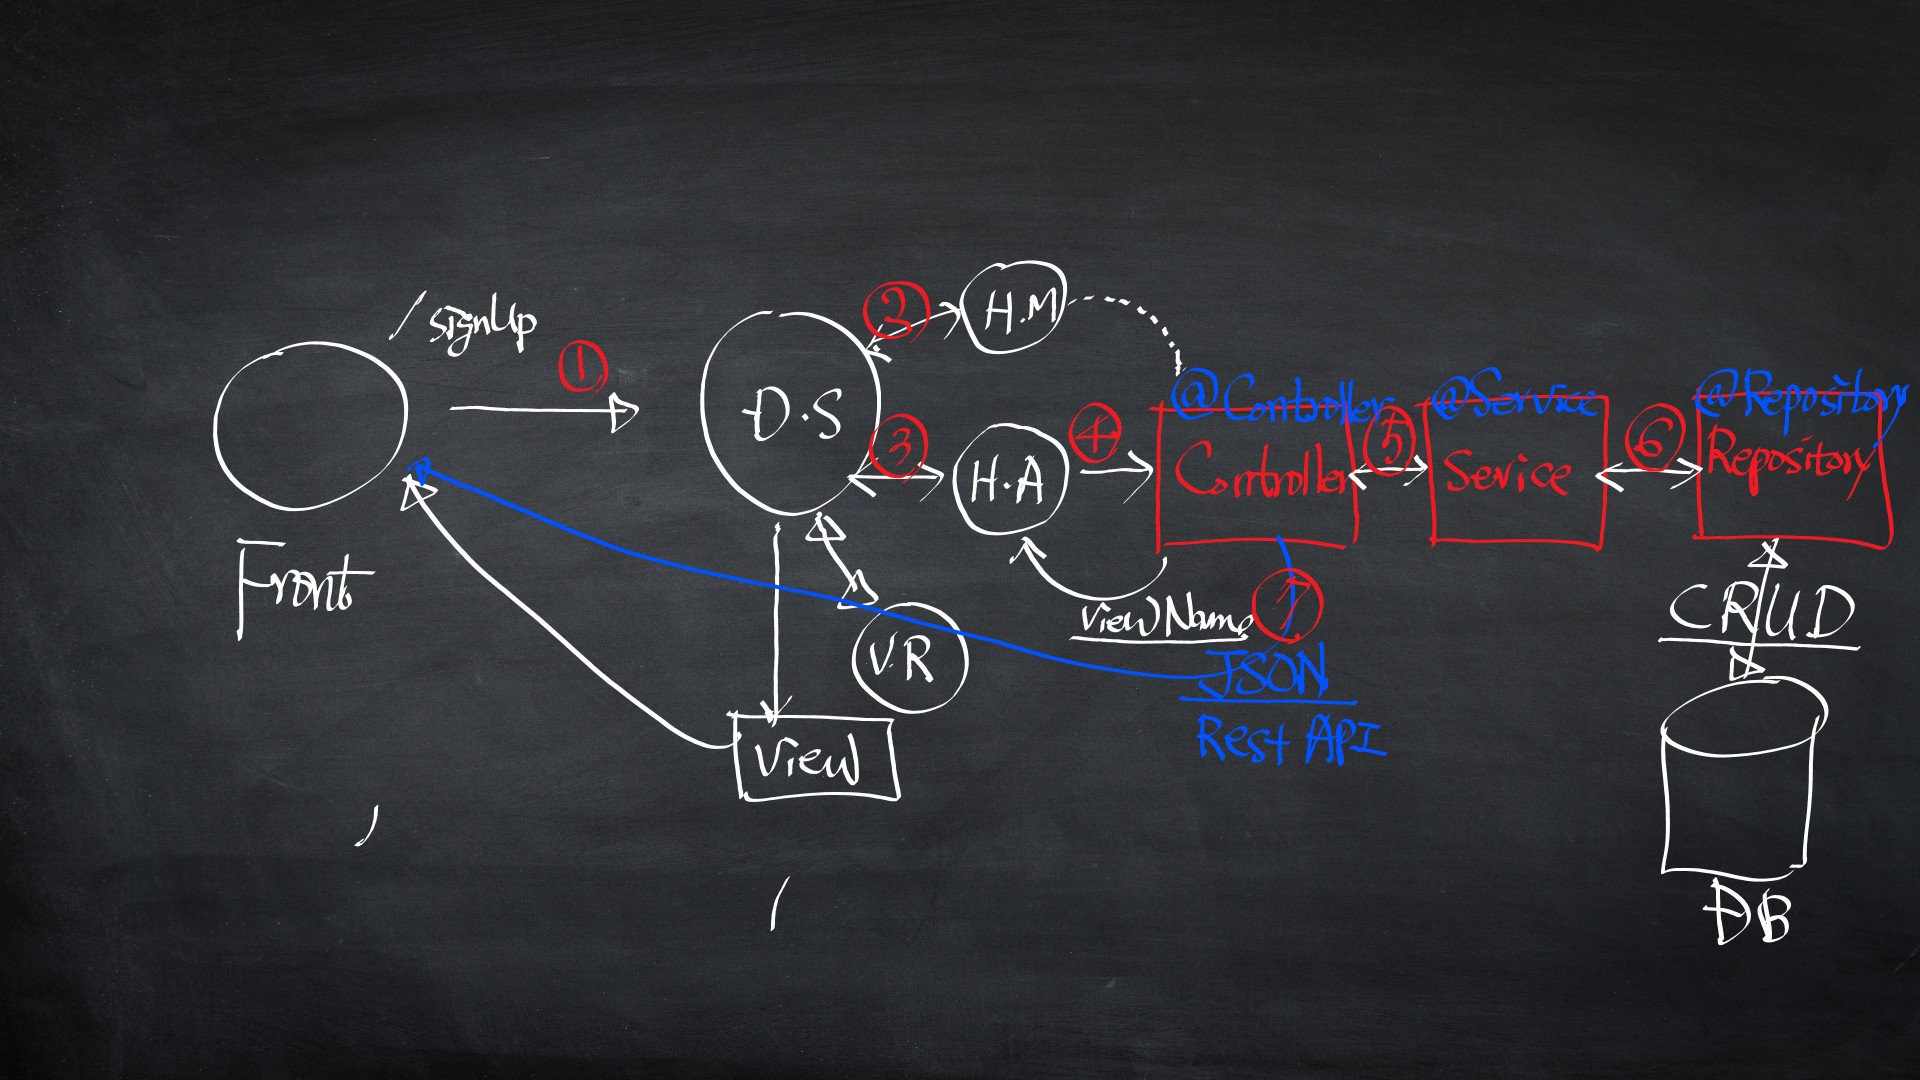 /signUp
①
Front
D.S
②
H.M
③
H.A
④
@Controller
Controller
⑤
@Service
Service
⑥
@Repository
Repository
ViewName
⑦
JSON
Rest API
V.R
View
CRUD
DB